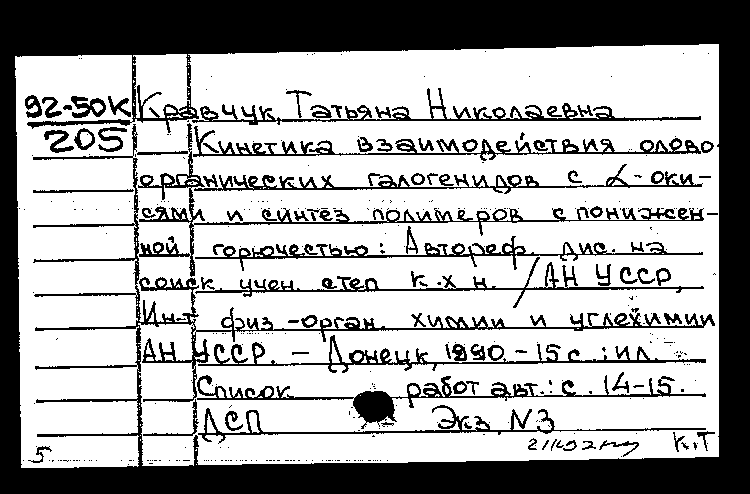 92-50К Кравчук, Татьяна Николаевна
205 Кинетика взаимодействия олово-
органических галогенидов с α-оки-
сями и синтез полимеров с понижен-
ной горючестью: Автореф. дис. на
соиск. учен. степ к.х н. / АН УССР,
Ин-т физ-орган. химии и углехимии
АН УССР. – Донецк, 1990. – 15 с. : ил.
Список работ авт.: с. 14-15.
ДСП Экз. N3
5 К.Т